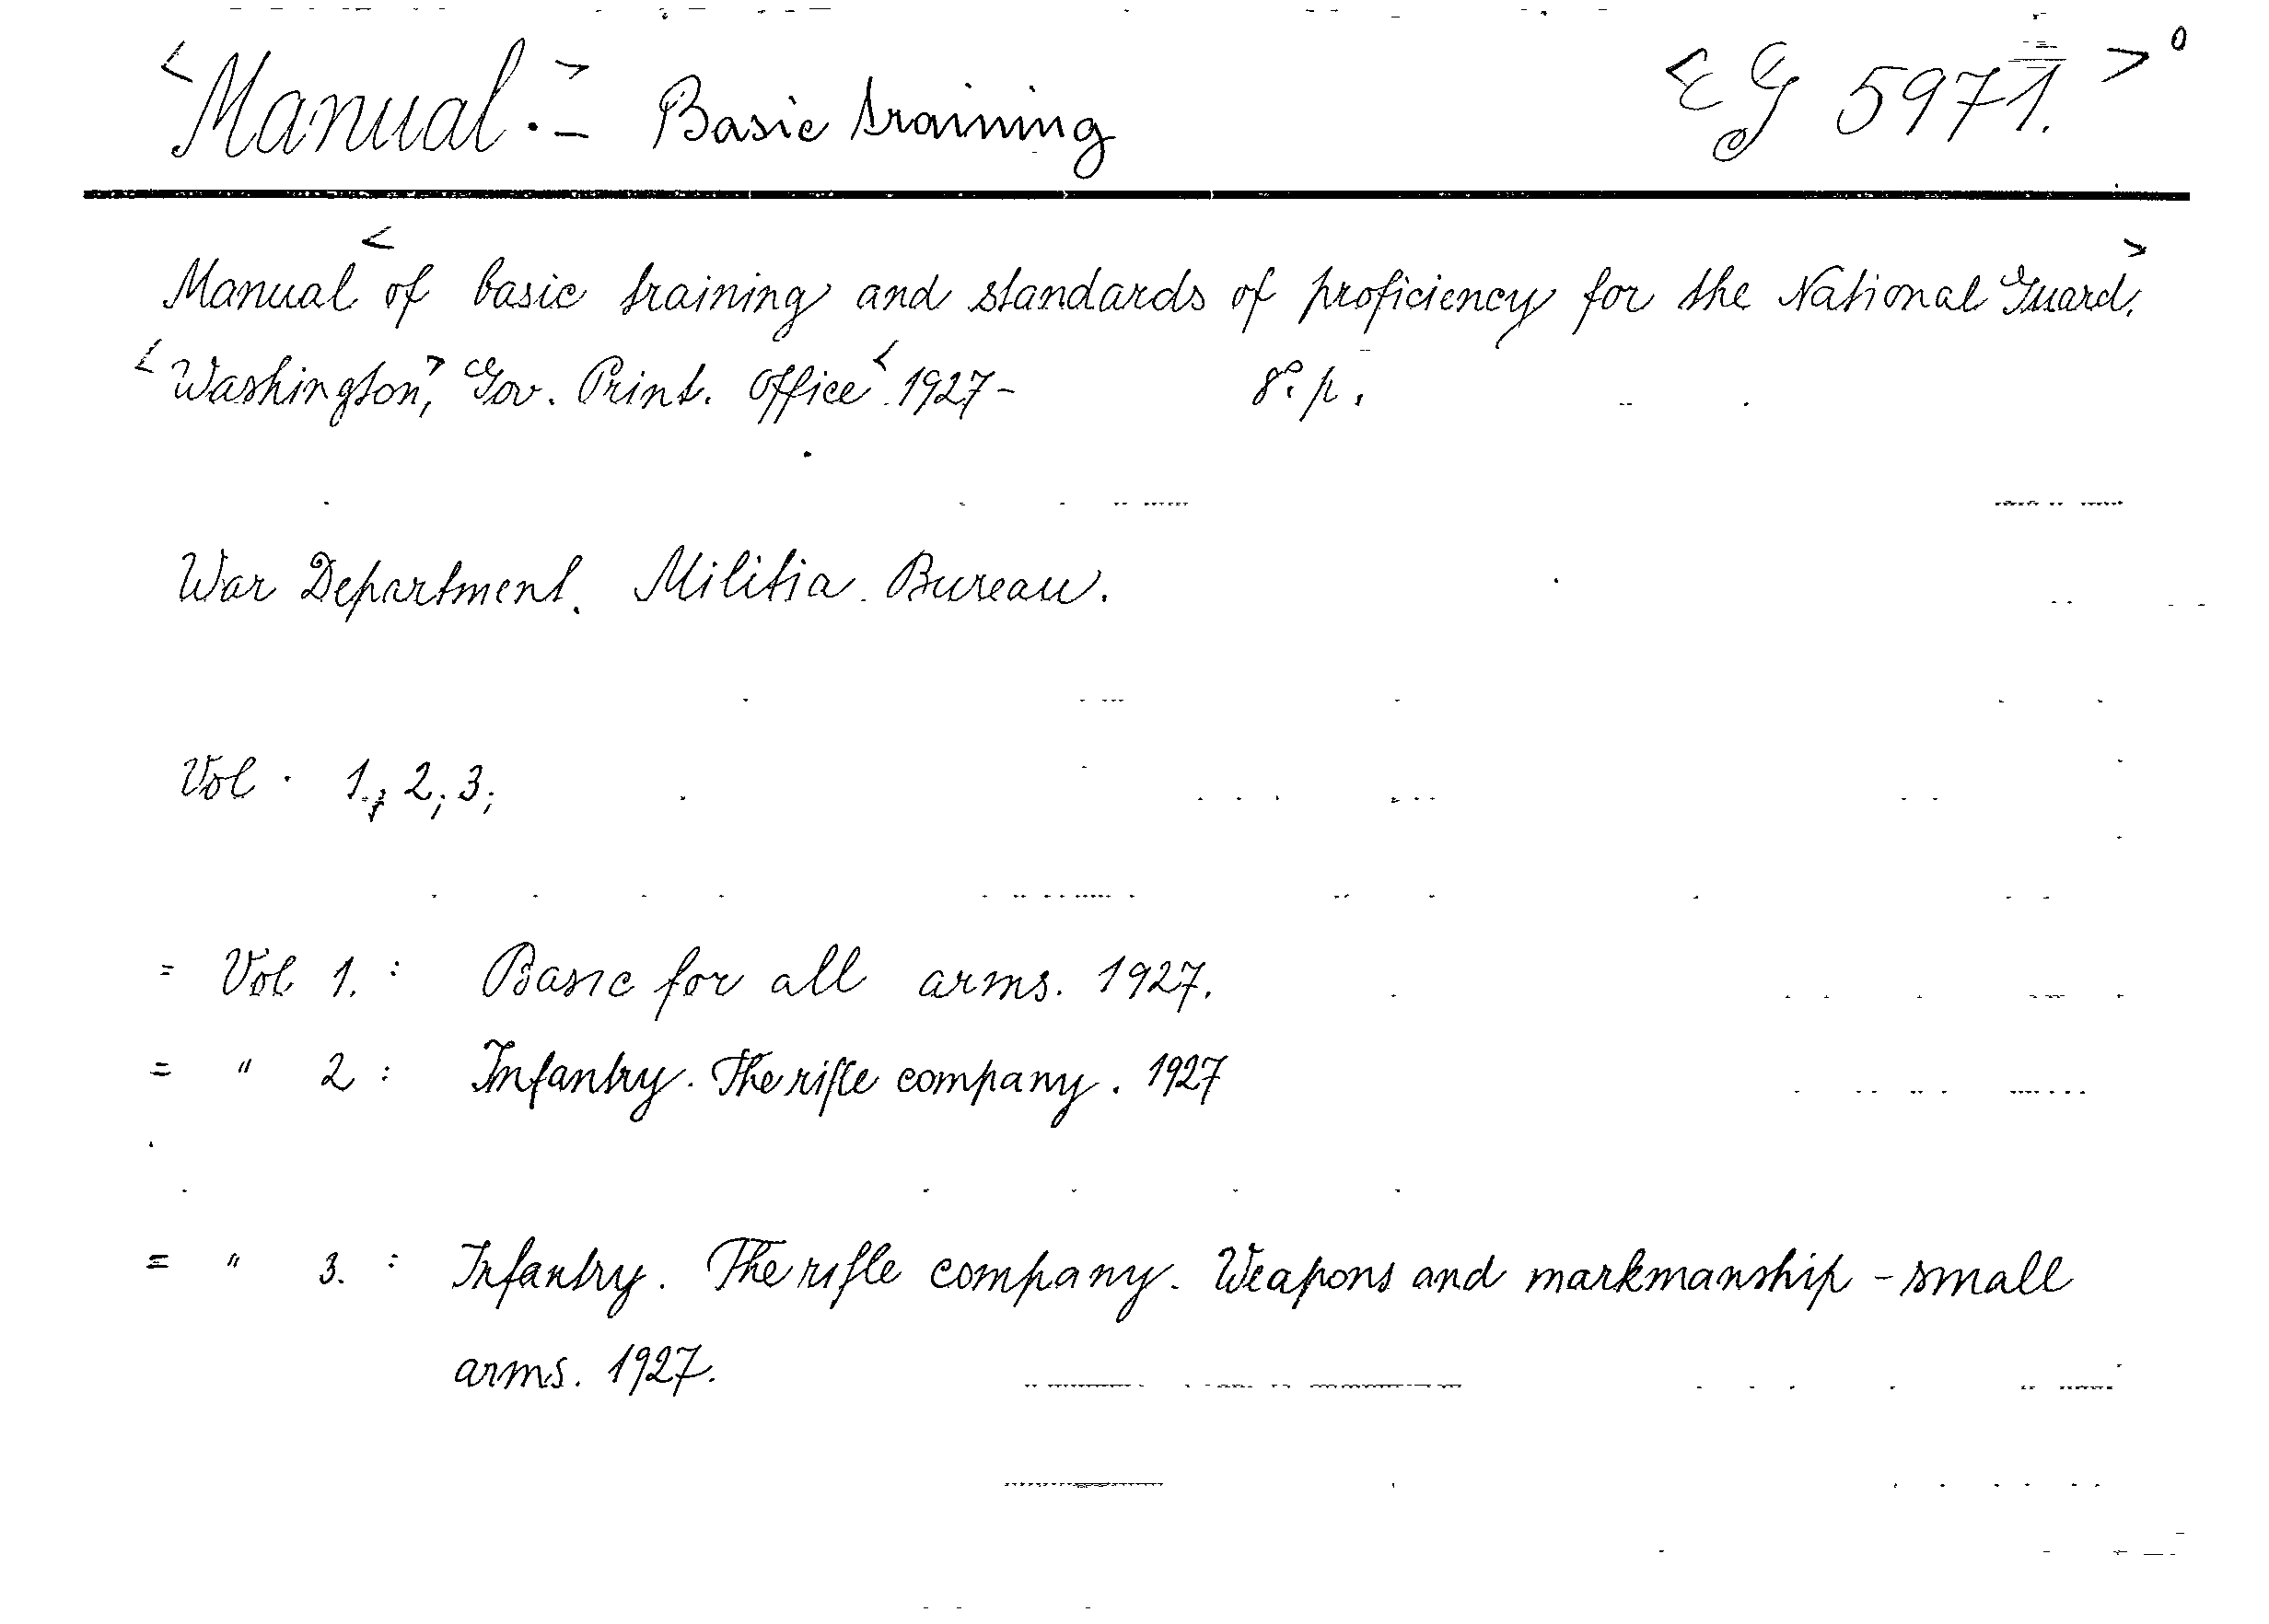 <Manual.> - Basic training <EG 5971.>⁰
Manual <of basic training and standards of proficiency for the National Guard.>
<Washington,> Gov. Print. Office< 1927- 8°. p.
War Department. Militia. Bureau.
Vol. 1.; 2; 3;
= Vol 1. : Basic for all arms. 1927.
= " 2 : Infantry. The rifle company. 1927
= " 3. : Infantry. The rifle company. Weapons and markmanship - small
arms. 1927.